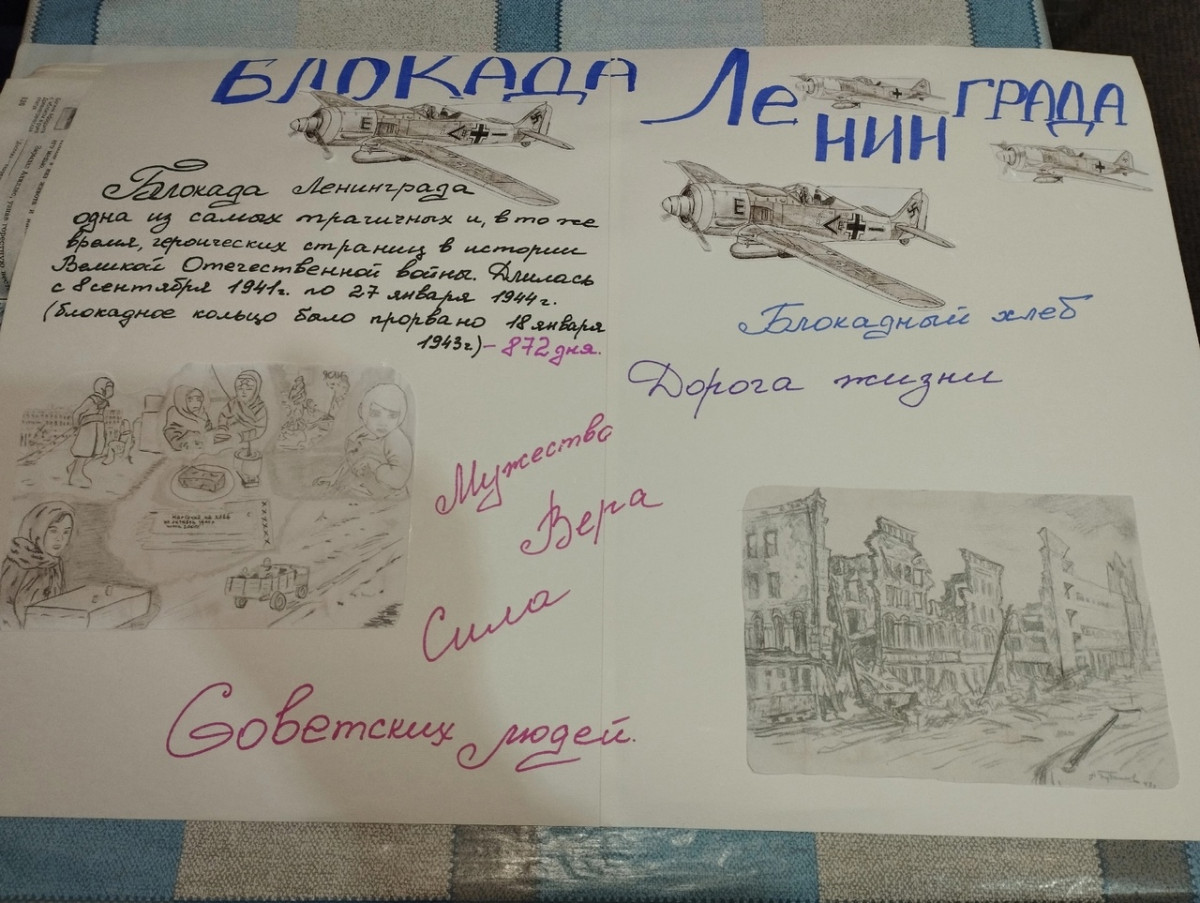 БЛОКАДА Ле
НИН
ГРАДА
Блокада Ленинграда
одна из самых трагичных и, в то же
время, героических страниц в истории
Великой Отечественной войны. Длилась
с 8 сентября 1941г. по 27 января 1944г.
(блокадное кольцо было прорвано 18 января
1943г) - 872 дня.
Блокадный хлеб
Дорога жизни
Мужество
Вера
Сила
Советских людей.
E
E